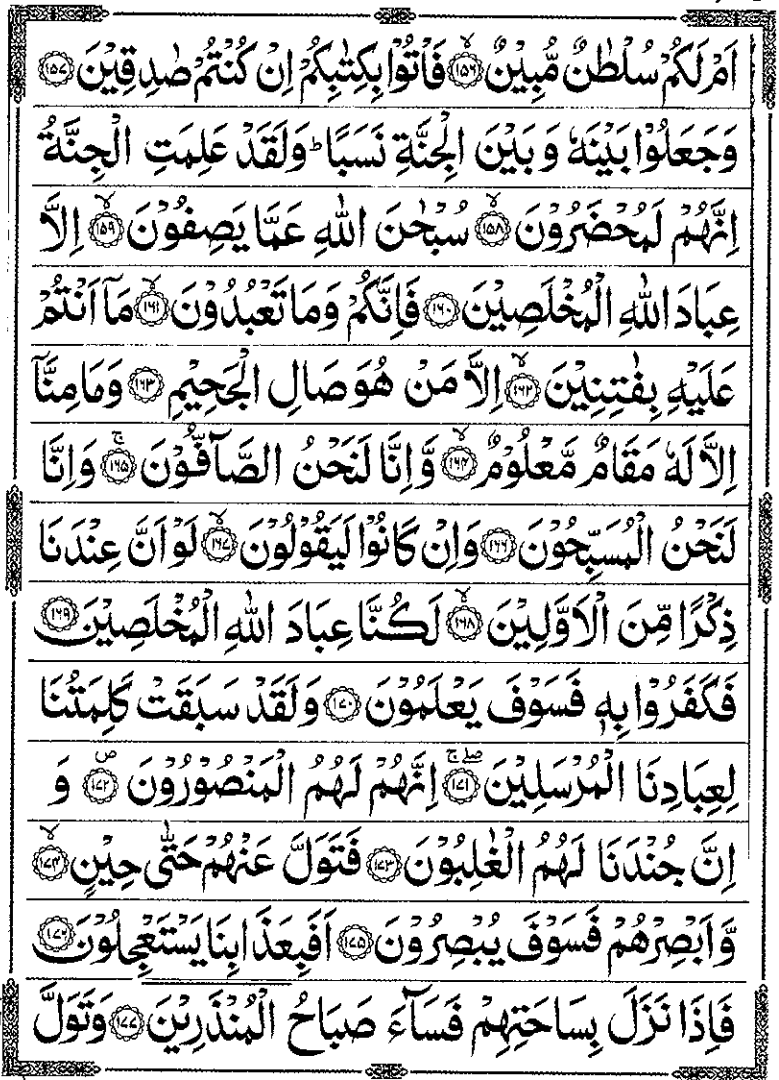 اَمۡ لَكُمۡ سُلۡطٰنٌ مُّبِيۡنٌ ۙ‏﴿۱۵۶﴾ فَاۡتُوۡا بِكِتٰبِكُمۡ اِنۡ كُنۡتُمۡ صٰدِقِيۡنَ‏﴿۱۵۷﴾
وَجَعَلُوۡا بَيۡنَهٗ وَبَيۡنَ الۡجِنَّةِ نَسَبًا ؕ وَلَقَدۡ عَلِمَتِ الۡجِنَّةُ
اِنَّهُمۡ لَمُحۡضَرُوۡنَ ۙ‏﴿۱۵۸﴾ سُبۡحٰنَ اللّٰهِ عَمَّا يَصِفُوۡنَ ۙ‏﴿۱۵۹﴾ اِلَّا
عِبَادَ اللّٰهِ الۡمُخۡلَصِيۡنَ‏﴿۱۶۰﴾ فَاِنَّكُمۡ وَمَا تَعۡبُدُوۡنَ ۙ‏﴿۱۶۱﴾ مَاۤ اَنۡتُمۡ
عَلَيۡهِ بِفٰتِنِيۡنَ ۙ‏﴿۱۶۲﴾ اِلَّا مَنۡ هُوَ صَالِ الۡجَحِيۡمِ‏﴿۱۶۳﴾ وَمَا مِنَّاۤ
اِلَّا لَهٗ مَقَامٌ مَّعۡلُوۡمٌ ۙ‏﴿۱۶۴﴾ وَّاِنَّا لَنَحۡنُ الصَّآفُّوۡنَ ۚ‏﴿۱۶۵﴾ وَاِنَّا
لَنَحۡنُ الۡمُسَبِّحُوۡنَ‏﴿۱۶۶﴾ وَاِنۡ كَانُوۡا لَيَقُوۡلُوۡنَ ۙ‏﴿۱۶۷﴾ لَوۡ اَنَّ عِنۡدَنَا
ذِكۡرًا مِّنَ الۡاَوَّلِيۡنَ ۙ‏﴿۱۶۸﴾ لَـكُنَّا عِبَادَ اللّٰهِ الۡمُخۡلَصِيۡنَ‏﴿۱۶۹﴾
فَكَفَرُوۡا بِهٖ‌ فَسَوۡفَ يَعۡلَمُوۡنَ‏﴿۱۷۰﴾ وَلَقَدۡ سَبَقَتۡ كَلِمَتُنَا
لِعِبَادِنَا الۡمُرۡسَلِيۡنَ ۖۚ‏﴿۱۷۱﴾ اِنَّهُمۡ لَهُمُ الۡمَنۡصُوۡرُوۡنَ‏﴿۱۷۲﴾ وَ
اِنَّ جُنۡدَنَا لَهُمُ الۡغٰلِبُوۡنَ‏﴿۱۷۳﴾ فَتَوَلَّ عَنۡهُمۡ حَتّٰى حِيۡنٍ ۙ‏﴿۱۷۴﴾
وَّاَبۡصِرۡهُمۡ فَسَوۡفَ يُبۡصِرُوۡنَ‏﴿۱۷۵﴾ اَفَبِعَذَابِنَا يَسۡتَعۡجِلُوۡنَ‏﴿۱۷۶﴾
فَاِذَا نَزَلَ بِسَاحَتِهِمۡ فَسَآءَ صَبَاحُ الۡمُنۡذَرِيۡنَ‏﴿۱۷۷﴾ وَتَوَلَّ